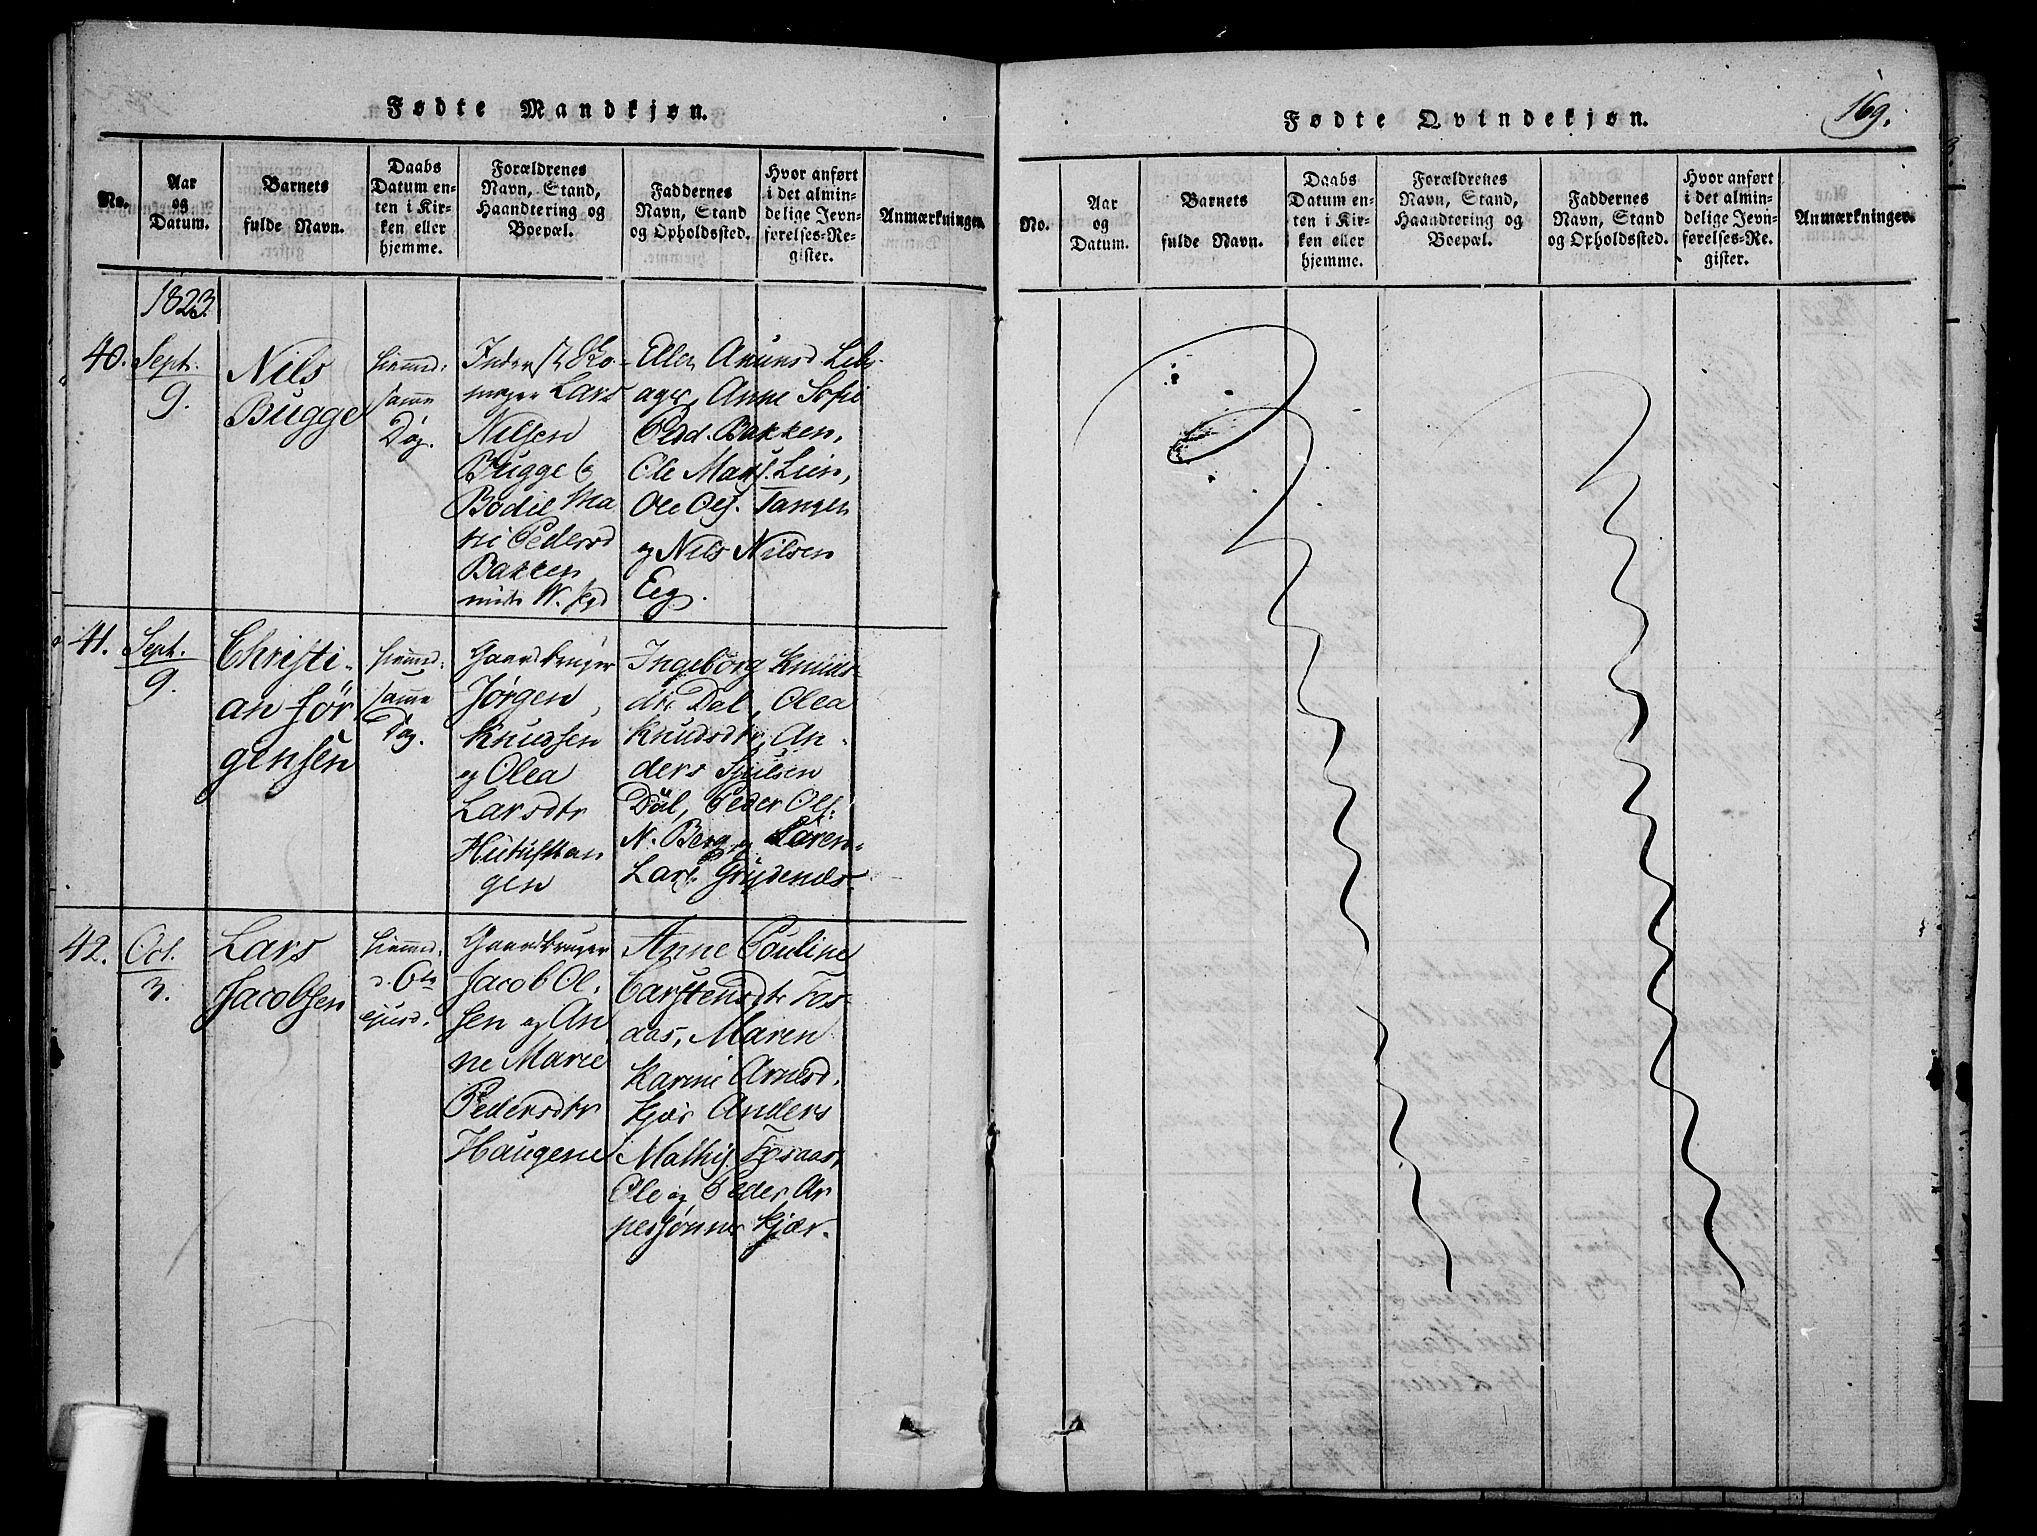 Fødte Mandkjøn.
No.
Aar
og
Datum.
Barnets
fulde Navn.
Daabs
Datum en-
ten i Kir-
ken eller
hjemme.
Forældrenes
Navn, Stand,
Haandtering og
Boepæl.
Faddernes
Navn, Stand
og Opholdssted.
Hvor anført
i det almin-
delige Jevn-
førelses-Re-
gister.
Anmærkninger.
1823.
40.
Sept.
9.
Nils
Bugge
samme
Dag.
Lars
Nilsen
Bugge &
Bodil Ma
rie Pedersd
Bakken
Ellen Amunsd.
ager, Anne Sofie
Pedd. Bakken,
Ole Lien,
Ole Ols. Tangen
og Nils Nilsen
Eeg.
41.
Sept.
9.
Christi-
an Jør
gensen
samme
Dag.
Gaardbruger
Jørgen
Knudsen
og Olea
Larsdtr
gen
Ingeborg Knuds-
dtr Dal, Olea
Knudsdtr, An-
ders
Dal, Peder Ols.
N. Berg og Søren
Lars.
42.
Oct.
3.
Lars
Jacobsen
Gaardbruger
Jacob Ol-
sen og An
ne Marie
Pedersdtr
Haugene
Anne Pouline
Carstensdtr Fos-
aas, Maren
Karine Arnesd.
Kjær Anders
Mathis. Fosaas,
Ole og Peder Ar
nessønner Kjær.
Fødte Qvindekjøn.
169.
No.
Aar
og
Datum.
Barnets
fulde Navn.
Daabs
Datum en-
ten i Kir-
ken eller
hjemme.
Forældrenes
Navn, Stand,
Haandtering og
Boepæl.
Faddernes
Navn, Stand
og Opholdssted.
Hvor anført
i det almin-
delige Jevn-
førelses-Re-
gister.
Anmærkninger.